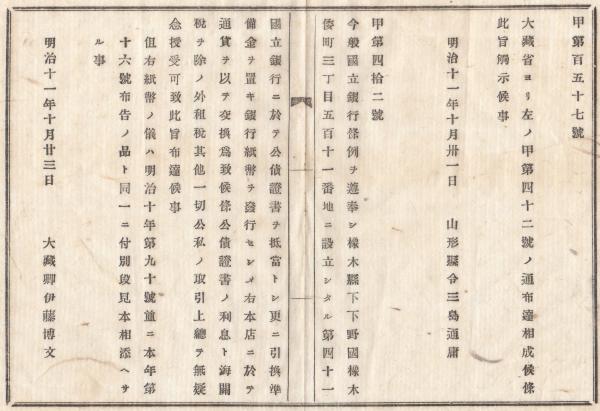 甲第百五十七號
大藏省ヨリ左ノ甲第四十二號ノ通布達相成候條
此旨觸示候事
明治十一年十月卅一日　山形縣令三島通庸
甲第四拾二號
今般國立銀行條例ヲ遵奉シ橡木縣下下野國橡木
倭町三丁目五百十一番地ニ設立シタル第四十一
國立銀行ニ於テ公債證書ヲ抵當トシ更ニ引換準
備金ヲ置キ銀行紙幣ヲ發行セシメ右本店ニ於テ
通貨ヲ以テ交換爲致候條公債證書ノ利息ト海關
税ヲ除ノ外租税其他一切公私ノ取引上總テ無疑
念授受可致此旨布達候事
但右紙幣ノ儀ハ明治十年第九十號並ニ本年第
十六號布告ノ品ト同一ニ付別段見本相添ヘサ
ル事
明治十一年十月廿三日　大藏卿伊藤博文